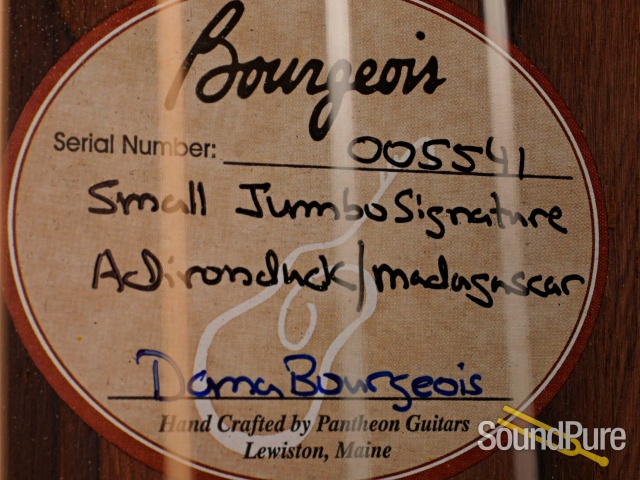 Bourgeois
Serial Number: 005541
Small Jumbo Signature
Adironduck/madagascar
Dana Bourgeois
Hand Crafted by Pantheon Guitars
Lewiston, Maine
SoundPure